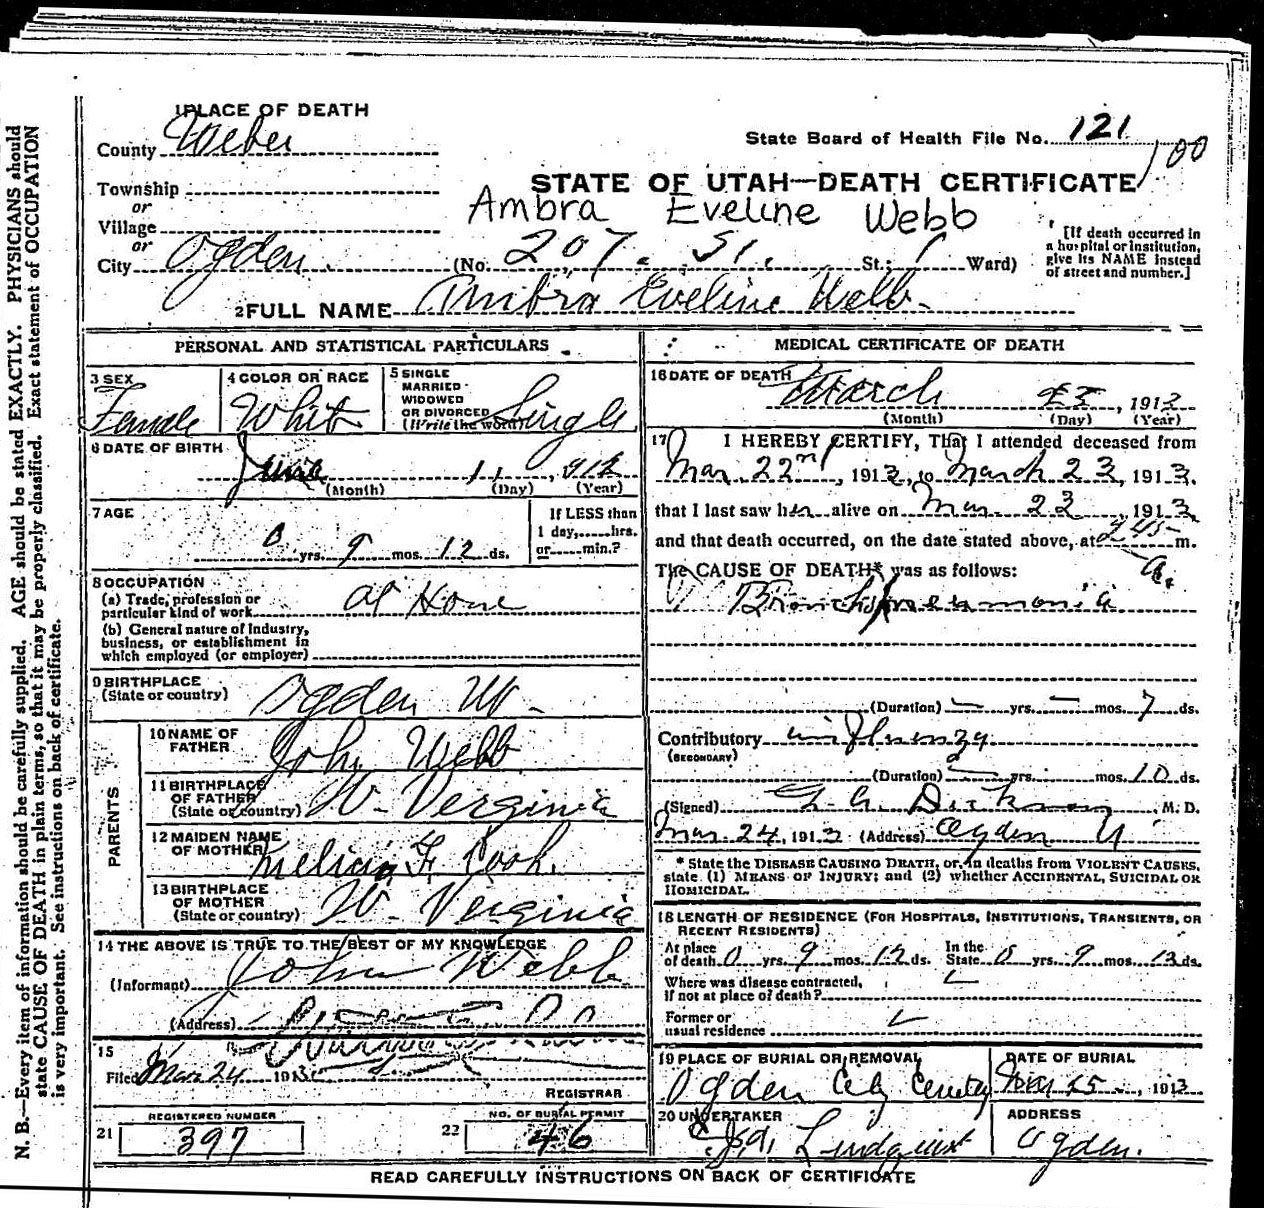 N. B.—Every item of information should be carefully supplied. AGE should be stated EXACTLY. PHYSICIANS should
state CAUSE OF DEATH in plain terms, so that it may be properly classified. Exact statement of OCCUPATION
is very important. See instructions on back of certificate.
1PLACE OF DEATH
County Weber
State Board of Health File No. 121
100
Township
or
Village
or
City Ogden
STATE OF UTAH—DEATH CERTIFICATE
Ambra Eveline Webb
(No. 207. St. St.; 1 Ward)
[If death occurred in
a hospital or institution,
give its NAME instead
of street and number.]
2FULL NAME Ambra Eveline Webb
PERSONAL AND STATISTICAL PARTICULARS
3 SEX
Female
4 COLOR OR RACE
White
5 SINGLE
MARRIED
WIDOWED
OR DIVORCED
(Write the word) Single
6 DATE OF BIRTH
June 11, 912
(Month) (Day) (Year)
7 AGE
0 yrs. 9 mos. 12 ds.
If LESS than
1 day,.....hrs.
or.....min.?
8 OCCUPATION
(a) Trade, profession or
particular kind of work at Home
(b) General nature of industry,
business, or establishment in
which employed (or employer)
9 BIRTHPLACE
(State or country) Ogden Ut.
PARENTS
10 NAME OF
FATHER John Webb
11 BIRTHPLACE
OF FATHER
(State or country) W. Verginia
12 MAIDEN NAME
OF MOTHER
13 BIRTHPLACE
OF MOTHER
(State or country) W. Verginia
14 THE ABOVE IS TRUE TO THE BEST OF MY KNOWLEDGE
(Informant) John Webb
(Address)
15
Filed Mar 24 1913
REGISTRAR
REGISTERED NUMBER
21 397
NO. OF BURIAL PERMIT
22 46
MEDICAL CERTIFICATE OF DEATH
16 DATE OF DEATH
March 23, 1913
(Month) (Day) (Year)
17 I HEREBY CERTIFY, That I attended deceased from
Mar. 22nd, 1913, to March 23, 1913.
that I last saw her alive on Mar. 23, 1913
and that death occurred, on the date stated above, at 245 m.
a.
The CAUSE OF DEATH* was as follows:
Broncho pneumonia
(Duration) — yrs. — mos. 7 ds.
Contributory influenza
(SECONDARY)
(Duration) — yrs. mos. 10 ds.
(Signed) M. D.
Mar. 24, 1913 (Address) Ogden U
* State the DISEASE CAUSING DEATH, or, in deaths from VIOLENT CAUSES,
state (1) MEANS OF INJURY; and (2) whether ACCIDENTAL, SUICIDAL OR
HOMICIDAL.
18 LENGTH OF RESIDENCE (FOR HOSPITALS, INSTITUTIONS, TRANSIENTS, OR
RECENT RESIDENTS)
At place
of death 0 yrs. 9 mos. 12 ds.
In the
State 0 yrs. 9 mos. 13 ds.
Where was disease contracted,
if not at place of death?
Former or
usual residence
19 PLACE OF BURIAL OR REMOVAL
Ogden City Cemetery
DATE OF BURIAL
Mar 25, 1913
20 UNDERTAKER
Lindquist
ADDRESS
Ogden.
READ CAREFULLY INSTRUCTIONS ON BACK OF CERTIFICATE